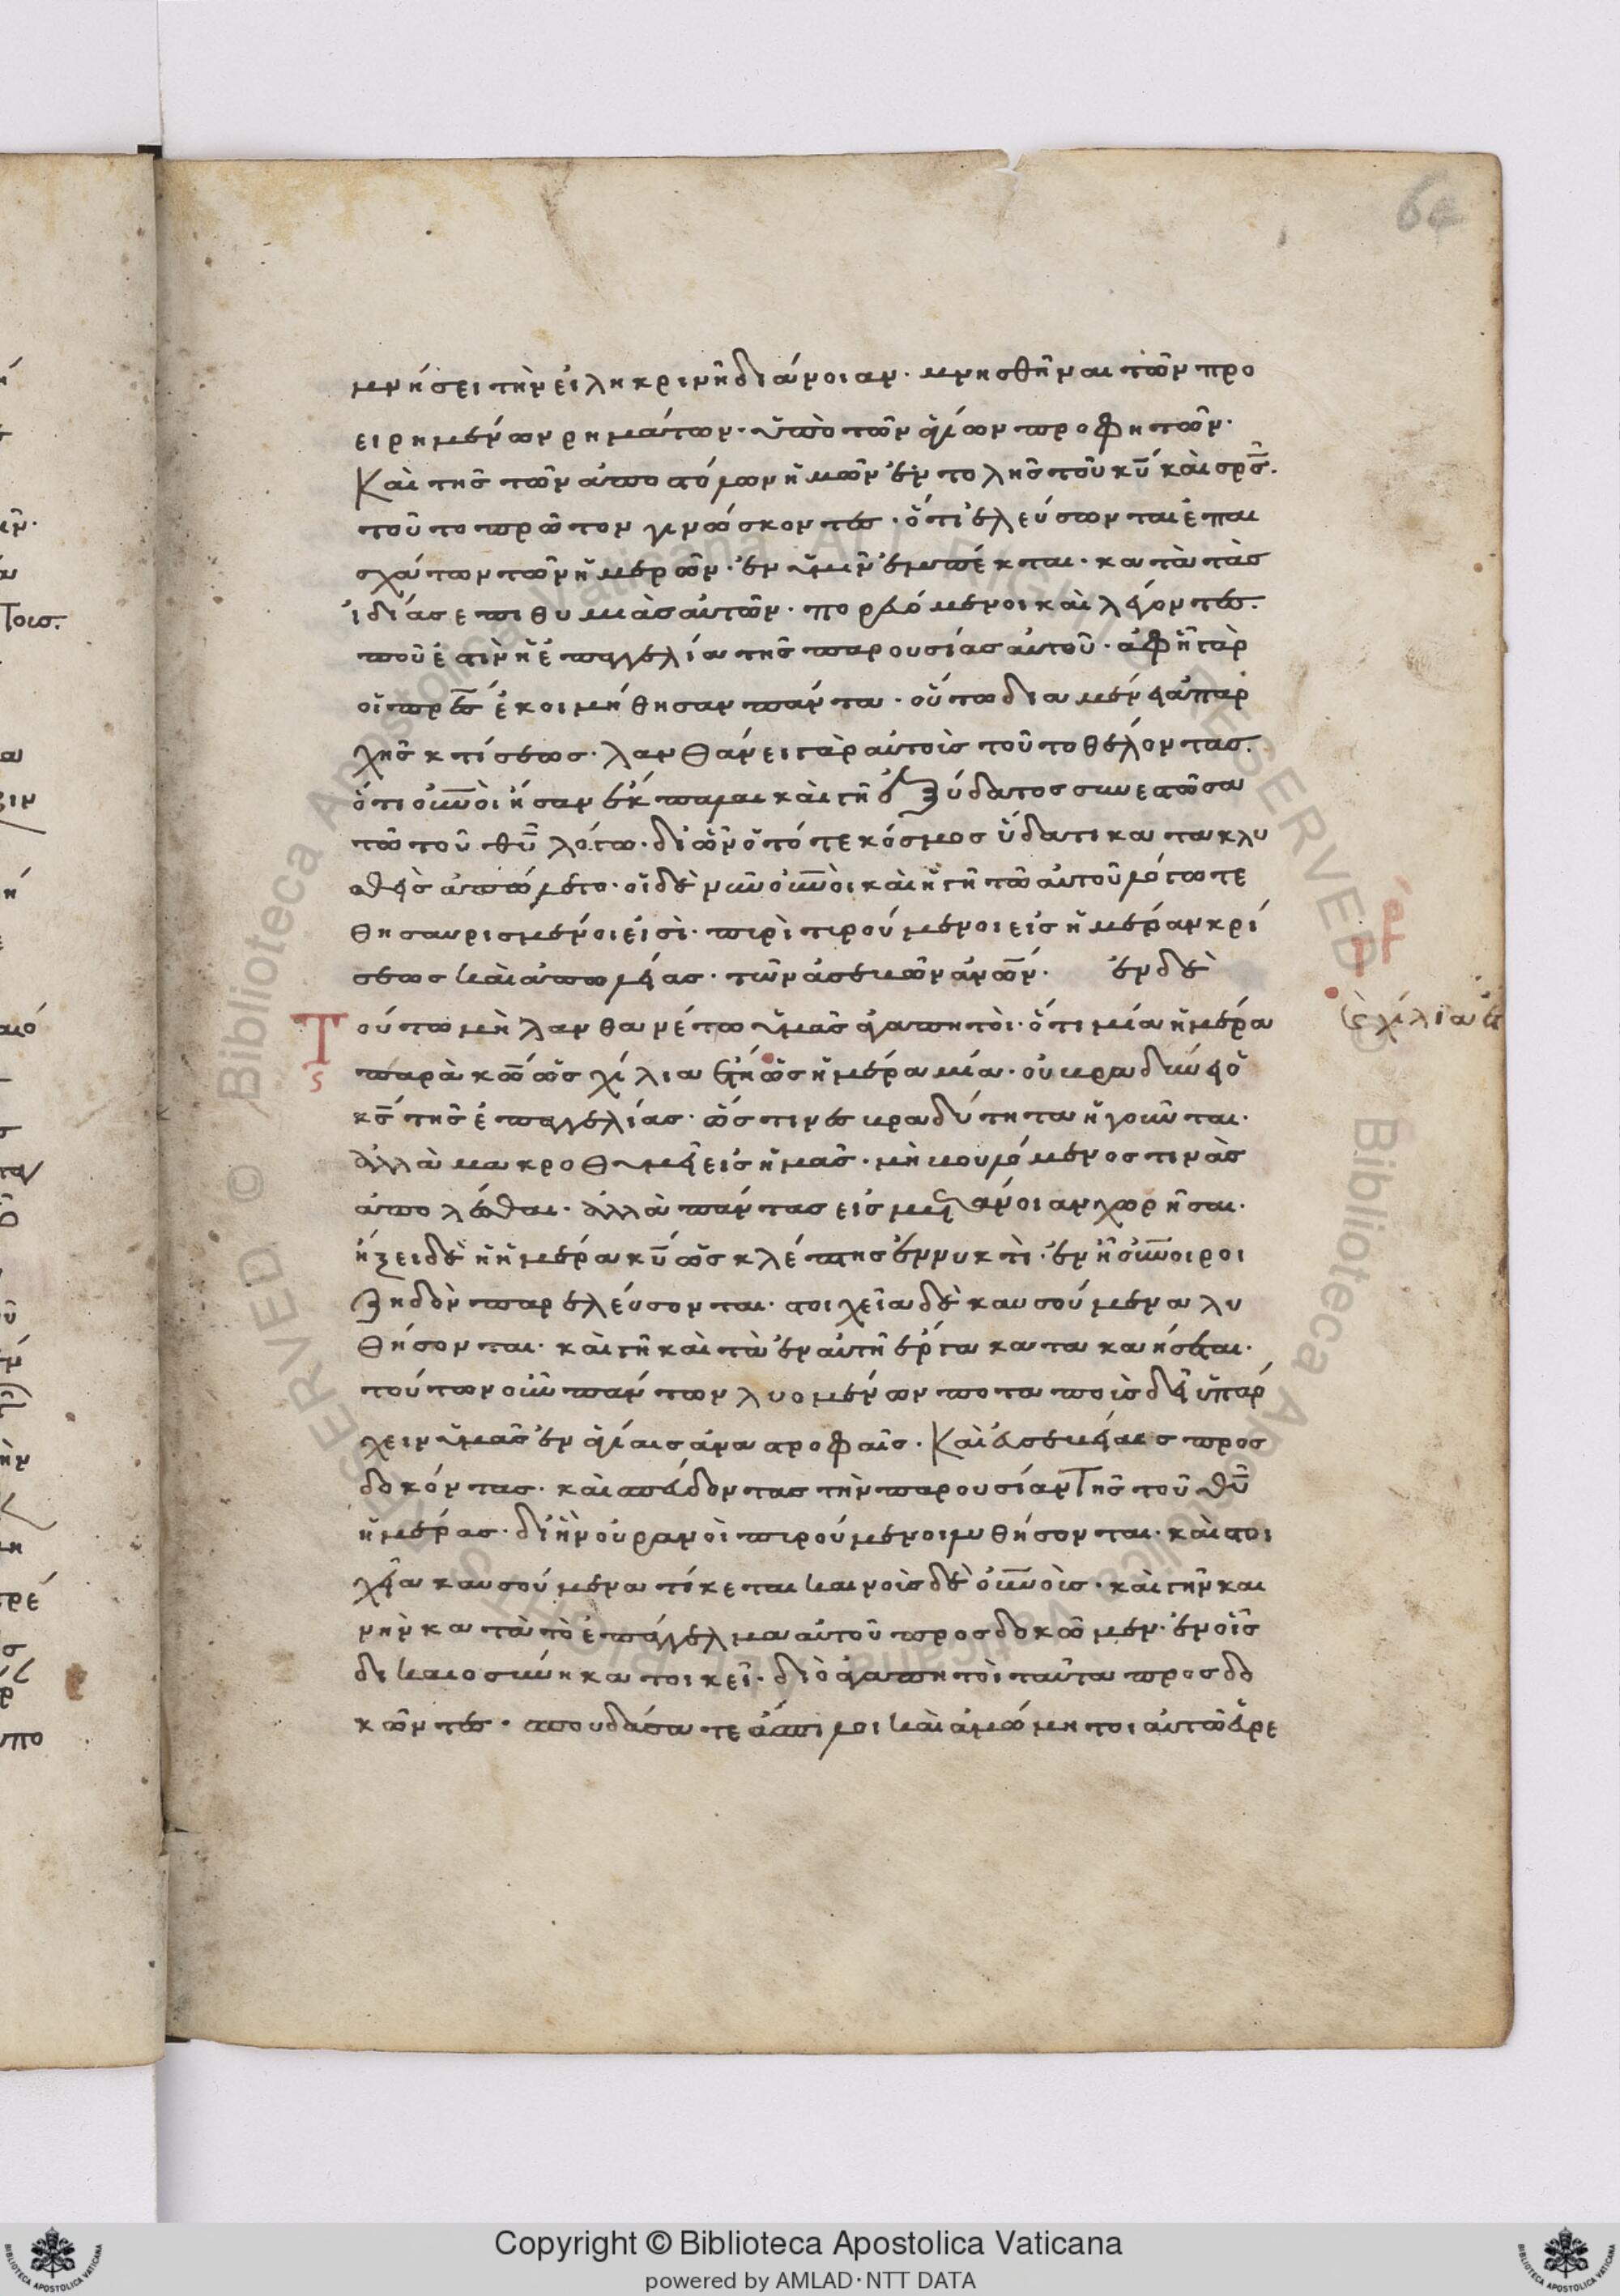 64
μνήσει τὴν εἰλικρινῆ διάνοιαν· μνησθῆναι τῶν προ
ειρημένων ρημάτων· ὑπὸ τῶν ἁγίων προφητῶν·
Καὶ τῆς τῶν ἀποστόλων ἡμῶν ἐντολῆς τοῦ κ̅υ̅ καὶ σρ̅ς̅·
τοῦτο πρῶτον γινώσκοντες· ὅτι ἐλεύσονται ἐπ αι
σχάτων τῶν ἡμερῶν· ἐν ὑμῖν ἐμπέκται· κατὰ τὰς
ἰδίας επιθυμίας αὐτῶν· πορευόμενοι καὶ λέγοντες·
ποῦ ἐστὶν ἡ ἐπαγγελία τῆς παρουσίας αὐτοῦ· ἀφ ἧς γὰρ
οἱ πρ̅ε̅ς̅ ἐκοιμήθησαν πάντα· οὕτω διαμένει ἀπ αρ
χῆς κτίσεως· λανθάνει γὰρ αὐτοὺς τοῦτο θέλοντας·
ὅτι οὐν̅οὶ ἦσαν ἔκπαλαι καὶ γῆ ἐξ ὕδατος συνεστῶσα
τῶ τοῦ θ̅υ̅ λόγω· δι ὧν ὁ τότε κόσμος ὕδατι κατακλυ
σθεὶς ἀπώλετο· οἱ δὲ νῦν οὐν̅οὶ καὶ ἡ γῆ τῶ αὐτοῦ λόγω τε
θησαυρισμένοι εἰσὶ· πυρὶ τηρούμενοι εἰς ἡμέραν κρί
σεως καὶ ἀπωλείας· τῶν ἀσεβῶν ἀν̅ω̅ν· ἐν δὲ
Τούτω μὴ λανθανέτω ὑμᾶς ἀγαπητοὶ· ὅτι μία ἡμέρα
παρὰ κ̅ω̅ ὡς χίλια ἔτη ὡς ἡμέρα μία· οὐ βραδύνει ὁ
κ̅ς̅ τῆς ἐπαγγελίας· ὥς τινες βραδύτητα ἡγοῦνται·
ἀλλὰ μακροθυμεῖ εἰς ἡμᾶς· μὴ βουλόμενος τινὰς
ἀπολέσθαι· ἀλλὰ πάντας εἰς μετάνοιαν χωρῆσαι·
ἥξει δὲ ἡ ἡμέρα κ̅υ̅ ὡς κλέπτης ἐν νυκτὶ· ἐν ἧ οὐν̅οι ροι
ζηδὸν παρελεύσονται· στοιχεῖα δὲ καυσούμενα λυ
θήσονται· καὶ γῆ καὶ τὰ ἐν αὐτῆ ἔργα κατακαήσεται·
τούτων οὖν πάντων λυομένων ποταποὺς δεῖ ὑπάρ
χειν ὑμᾶς ἐν ἁγίαις ἀναστροφαῖς· Καὶ εὐσεβείαις προς
δοκόντας· καὶ σπεύδοντας τὴν παρουσίαν τῆς τοῦ θ̅υ̅
ἡμέρας· δι ἣν οὐρανοὶ πυρούμενοι λυθήσονται· καὶ στοι
χεῖα καυσούμενα τίκεται καινοὺς δὲ οὐν̅οὺς· καὶ γῆν και
νὴν κατὰ τὸ ἐπάγγελμα αὐτοῦ προσδοκῶμεν· ἐν οἷς
δικαιοσύνη κατοικεῖ· διὸ ἀγαπητοὶ ταῦτα προσδο
κῶντες· σπουδάσατε ἄσπιλοι καὶ ἀμώμητοι αὐτῶ εὑρε